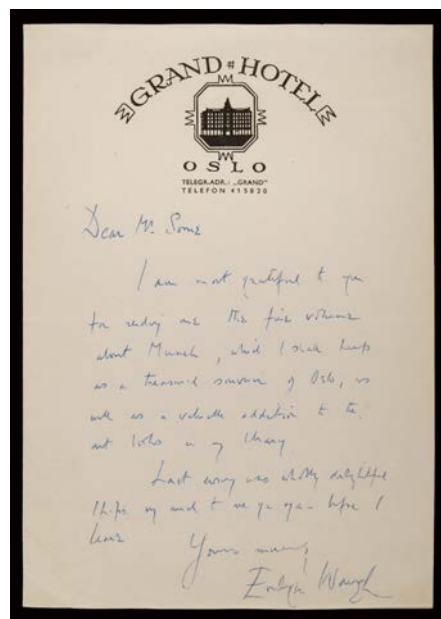 GRAND HOTEL
OSLO
TELEGR.ADR.: „GRAND"
TELEFON 415820
Dear Mr.
I am most grateful to you
for sending me the fine volume
about Munch, which I shall keep
as a treasured souvenir of Oslo, as
well as a valuable addition to the
art books in my library
Last evening was wholly delightful
I hope very much to see you again before I
leave
Yours
Evelyn Waugh